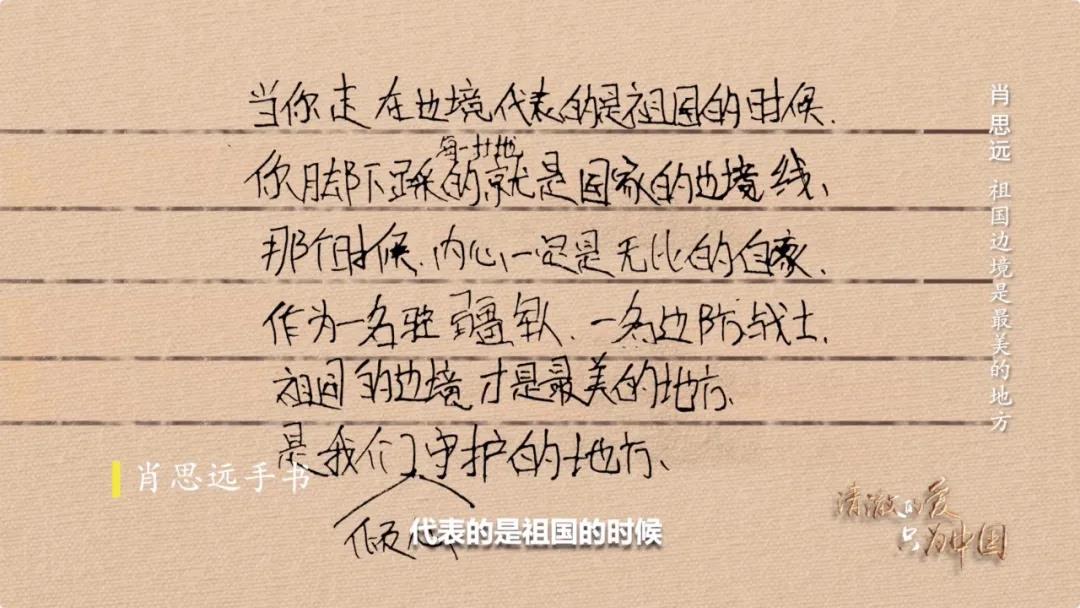 当你走在边境代表的是祖国的时候.
每一寸地
你脚下踩的就是国家的边境线、
那个时候.内心一定是无比的自豪、
作为一名驻疆军人.一名边防战士.
祖国的边境才是最美的地方、
是我们守护的地方、
肖思远手书
代表的是祖国的时候
肖思远 祖国边境是最美的地方
清澈的爱
只为中国